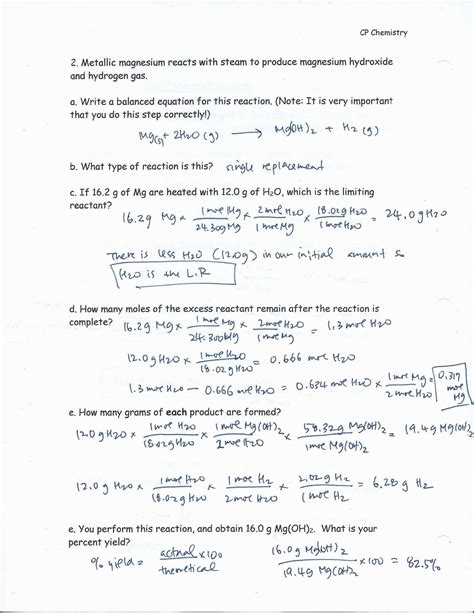 CP Chemistry
2. Metallic magnesium reacts with steam to produce magnesium hydroxide
and hydrogen gas.
a. Write a balanced equation for this reaction. (Note: It is very important
that you do this step correctly!)
Mg(s) + 2H2O (g) → Mg(OH)2 + H2 (g)
b. What type of reaction is this? single replacement
c. If 16.2 g of Mg are heated with 12.0 g of H2O, which is the limiting
reactant?
16.2g Mg × 1 mol Mg / 24.30g Mg × 2 mol H2O / 1 mol Mg × 18.02g H2O / 1 mol H2O = 24.0g H2O
There is less H2O (12.0g) in our initial amount so
H2O is the L.R
d. How many moles of the excess reactant remain after the reaction is
complete? 16.2g Mg × 1 mol Mg / 24.300g Mg × 2 mol H2O / 1 mol Mg = 1.3 mol H2O
12.0g H2O × 1 mol H2O / 18.02g H2O = 0.666 mol H2O
1.3 mol H2O − 0.666 mol H2O = 0.634 mol H2O × 1 mol Mg / 2 mol H2O = 0.317 mol Mg
e. How many grams of each product are formed?
12.0g H2O × 1 mol H2O / 18.02g H2O × 1 mol Mg(OH)2 / 2 mol H2O × 58.32g Mg(OH)2 / 1 mol Mg(OH)2 = 19.4g Mg(OH)2
12.0g H2O × 1 mol H2O / 18.02g H2O × 1 mol H2 / 2 mol H2O × 2.02g H2 / 1 mol H2 = 6.28g H2
e. You perform this reaction, and obtain 16.0 g Mg(OH)2. What is your
percent yield?
% yield = actual / theoretical × 100
16.0g Mg(OH)2 / 19.4g Mg(OH)2 × 100 = 82.5%